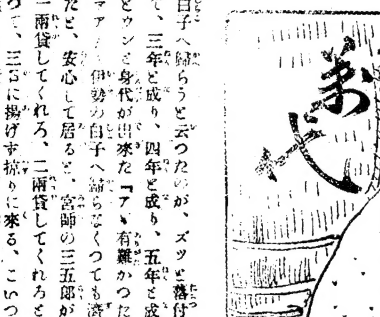 白子へ歸らうと云つたのが、ズツと落付
て、三年と成り、四年と成り、五年と成
とウンと身代が出來た『アヽ有難かつた
マア 伊勢の白子へ歸らなくつても濟
だと、安心して居ると、宮師の三五郎が
一兩貸してくれろ、二兩貸してくれろと
つて、三 に揚げず掠りに來る、こいつ